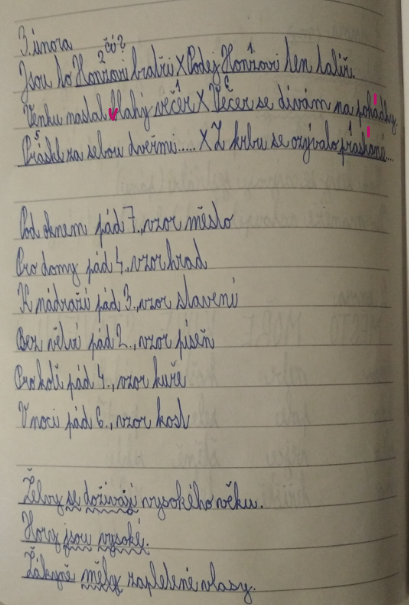 3. února
2 čí? 1
Jsou to Honzovi bratři X Podej Honzovi ten talíř.
1 6
Venku nastal vlahý večer X Večer se dívám na pohádky.
5 1
Práskl za sebou dveřmi..... X Z krbu se ozývalo práskání...
Pod oknem pád 7., vzor město
Pro domy pád 4., vzor hrad
K nádraží pád 3., vzor stavení
Bez větví pád 2., vzor píseň
Pro kotě pád 4., vzor kuře
V noci pád 6., vzor kost
Želvy se dožívají vysokého věku.
Hory jsou vysoké.
Žákyně měly zapletené vlasy.